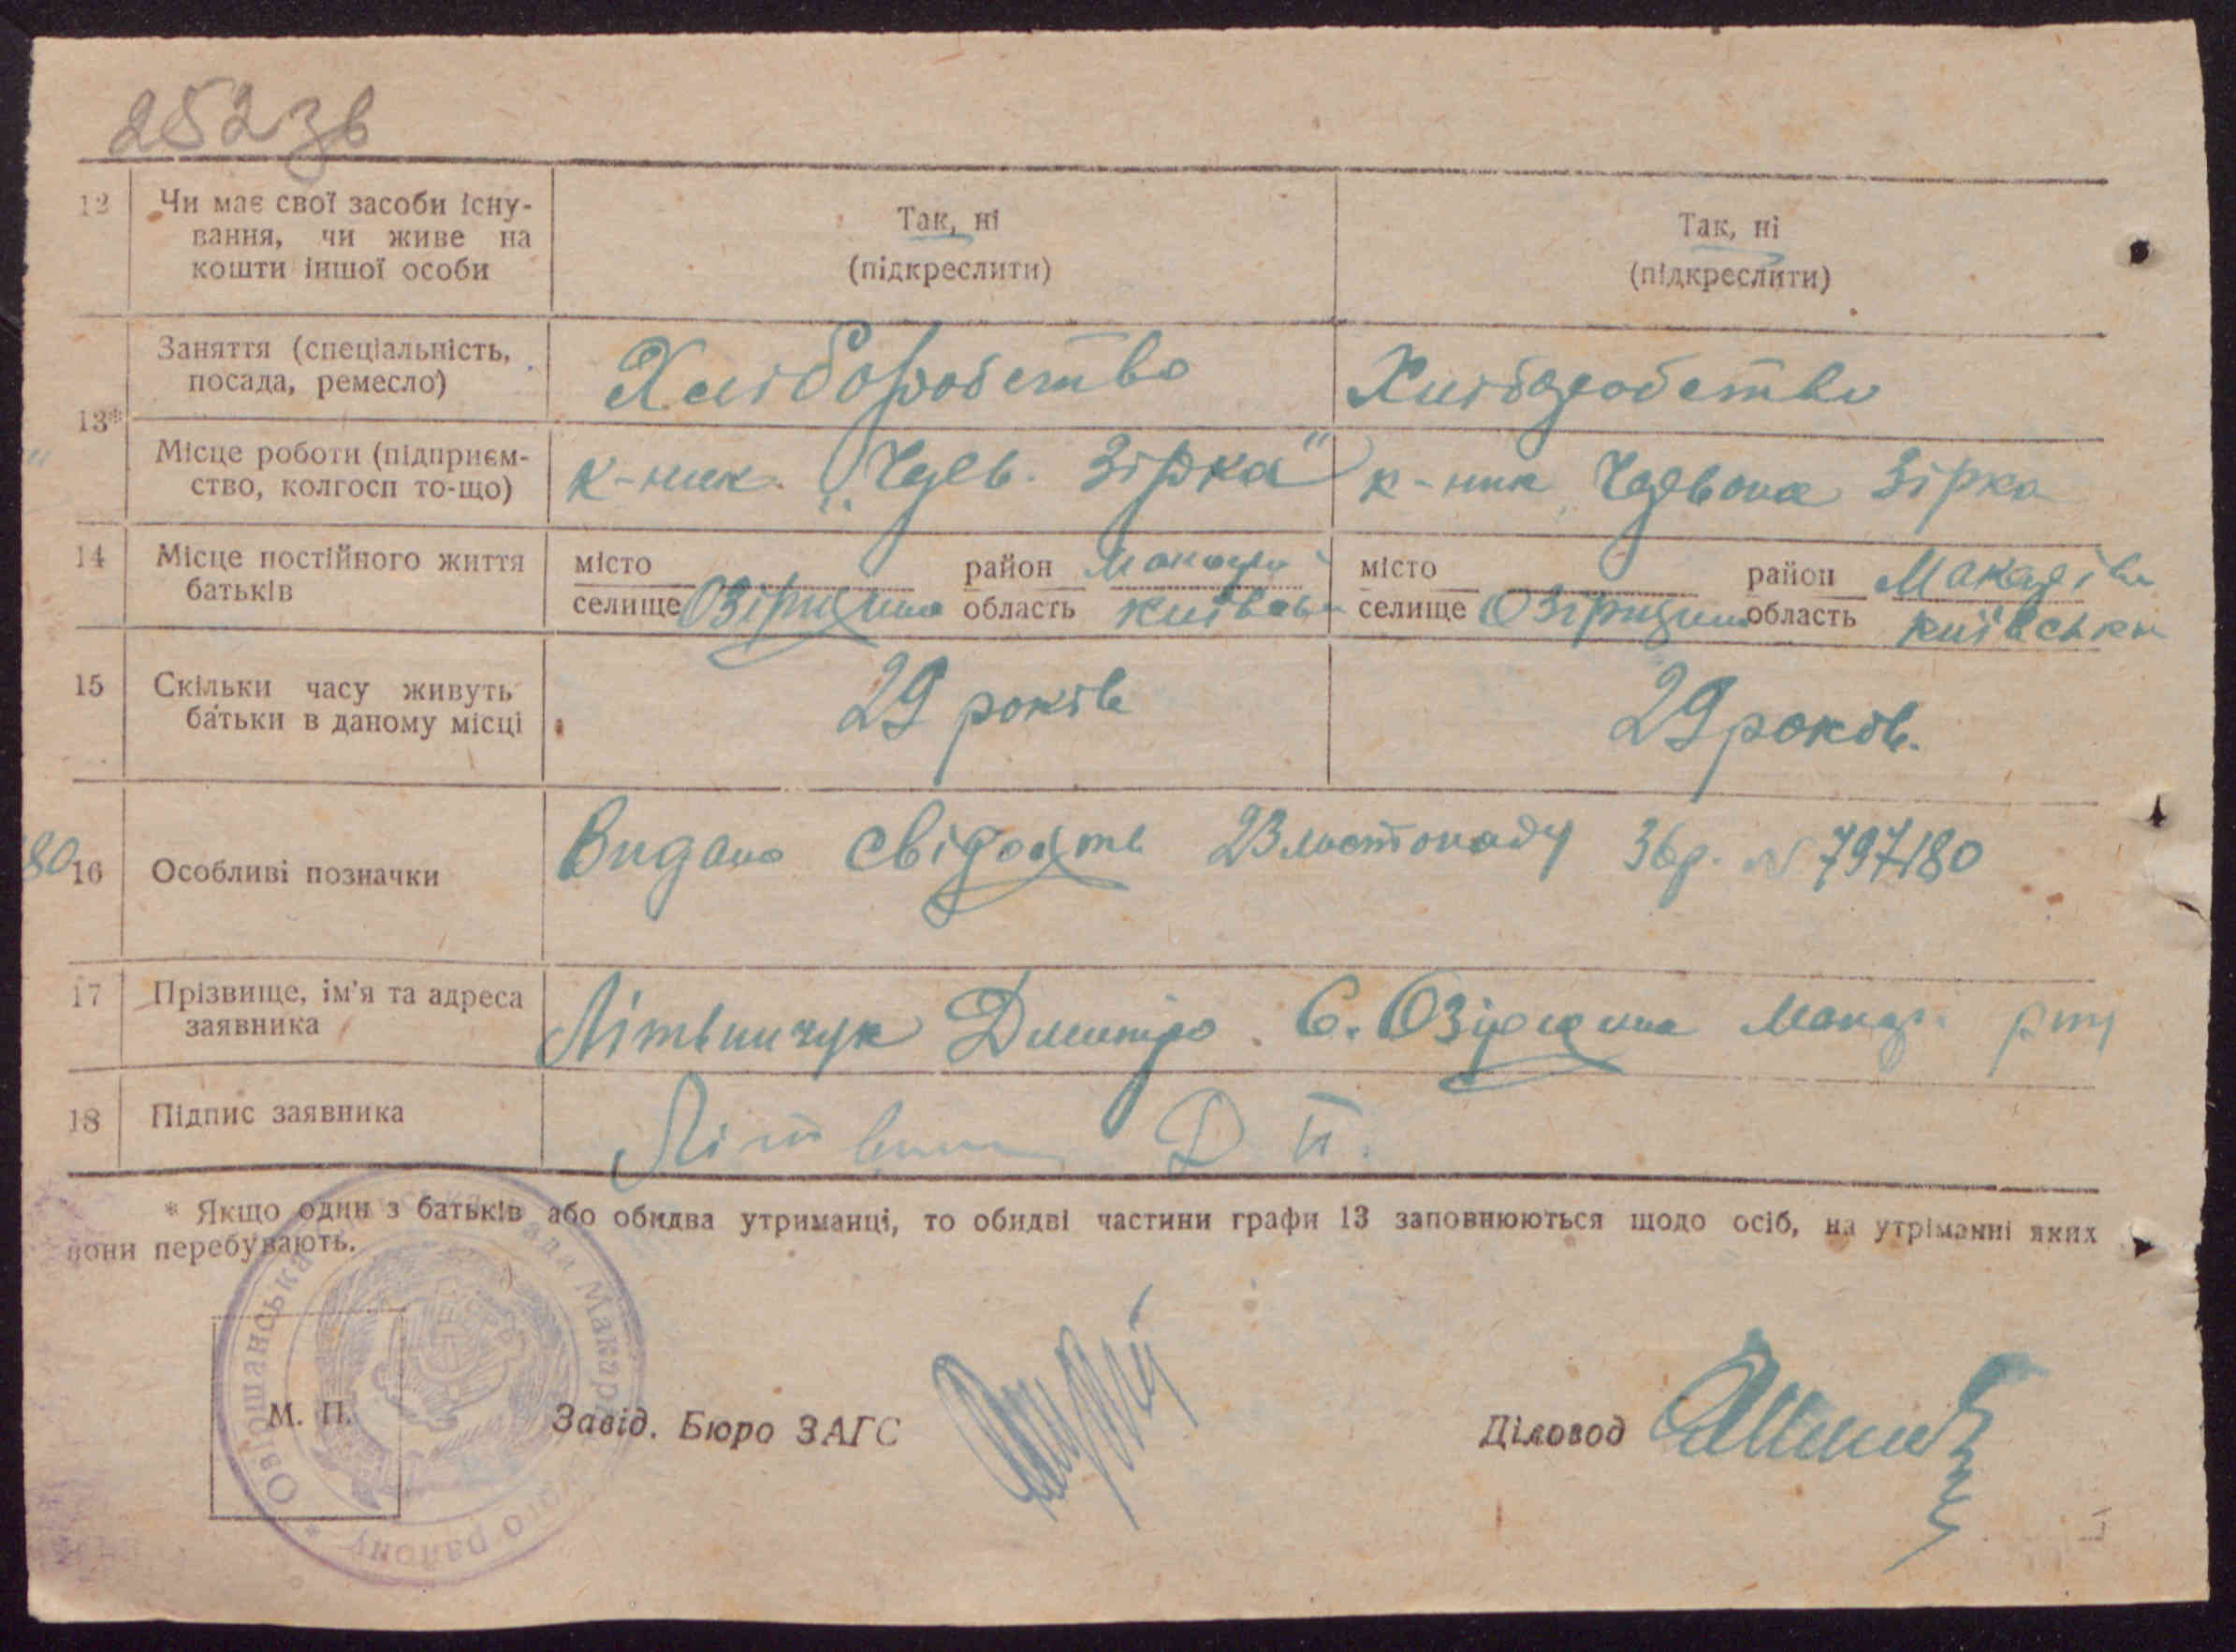 252 зв
12 Чи має свої засоби існу- Так, ні Так, ні
вання, чи живе на
кошти іншої особи (підкреслити) (підкреслити)
13* Заняття (спеціальність, Хліборобство Хліборобство
посада, ремесло)
Місце роботи (підприєм- к-ник. „Черв. Зірка" к-ник Червона Зірка
ство, колгосп то-що)
14 Місце постійного життя місто район Макарів місто район Макарівськ
батьків селище Озірщина область Київськ селище Озірщина область Київська
15 Скільки часу живуть 29 років 29 років.
батьки в даному місці
16 Особливі позначки Видано свідоцтв 23 листопаду 36 р. № 797180
17 Прізвище, ім'я та адреса Літвинчук Дмитро. С. Озірщина Макар.
заявника
18 Підпис заявника Літвин Д П.
* Якщо один з батьків або обидва утриманці, то обидві частини графи 13 заповнюються щодо осіб, на утріманні яких
вони перебувають.
Озірщанська рада Макар району
М. П. Завід. Бюро ЗАГС Діловод